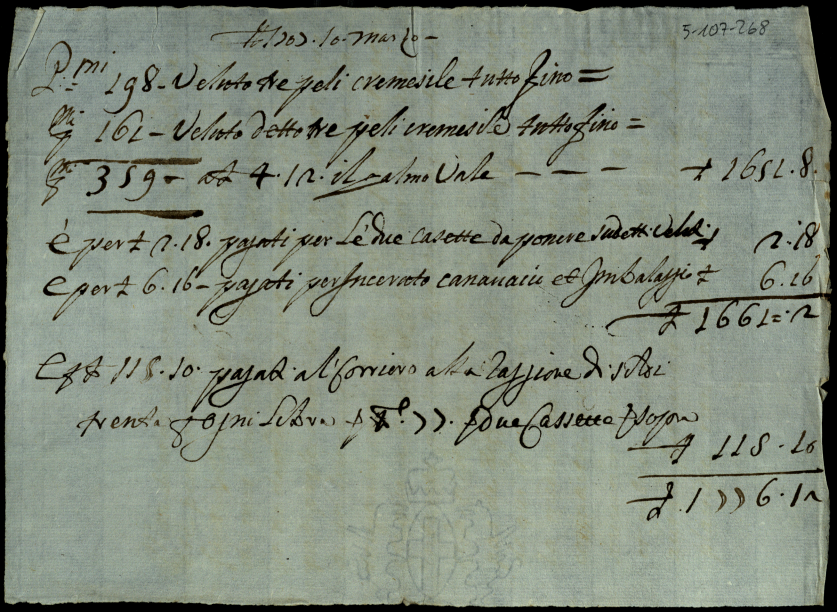 10. marzo
5-107-268
P.mi 198 - Veluto tre peli cremesile tutto fino =
P.mi 161 - Veluto detto tre peli cremesile tutto fino =
P.mi 359 - a £ 4.12. il palmo Vale - - - £ 1651.8.
è per £ 2.18. pagati per Le due casette da ponere sudetti Veluti £ 2.18
e per £ 6.16 - pagati per Incerato canavaciu et Imbalaggio £ 6.16
£ 1661=.2
E p £ 115.10. pagati al Corriero alla Raggione di soldi
trenta p ogni Libra p 77. p due Cassette sopra
£ 115.10
£ .1776.12